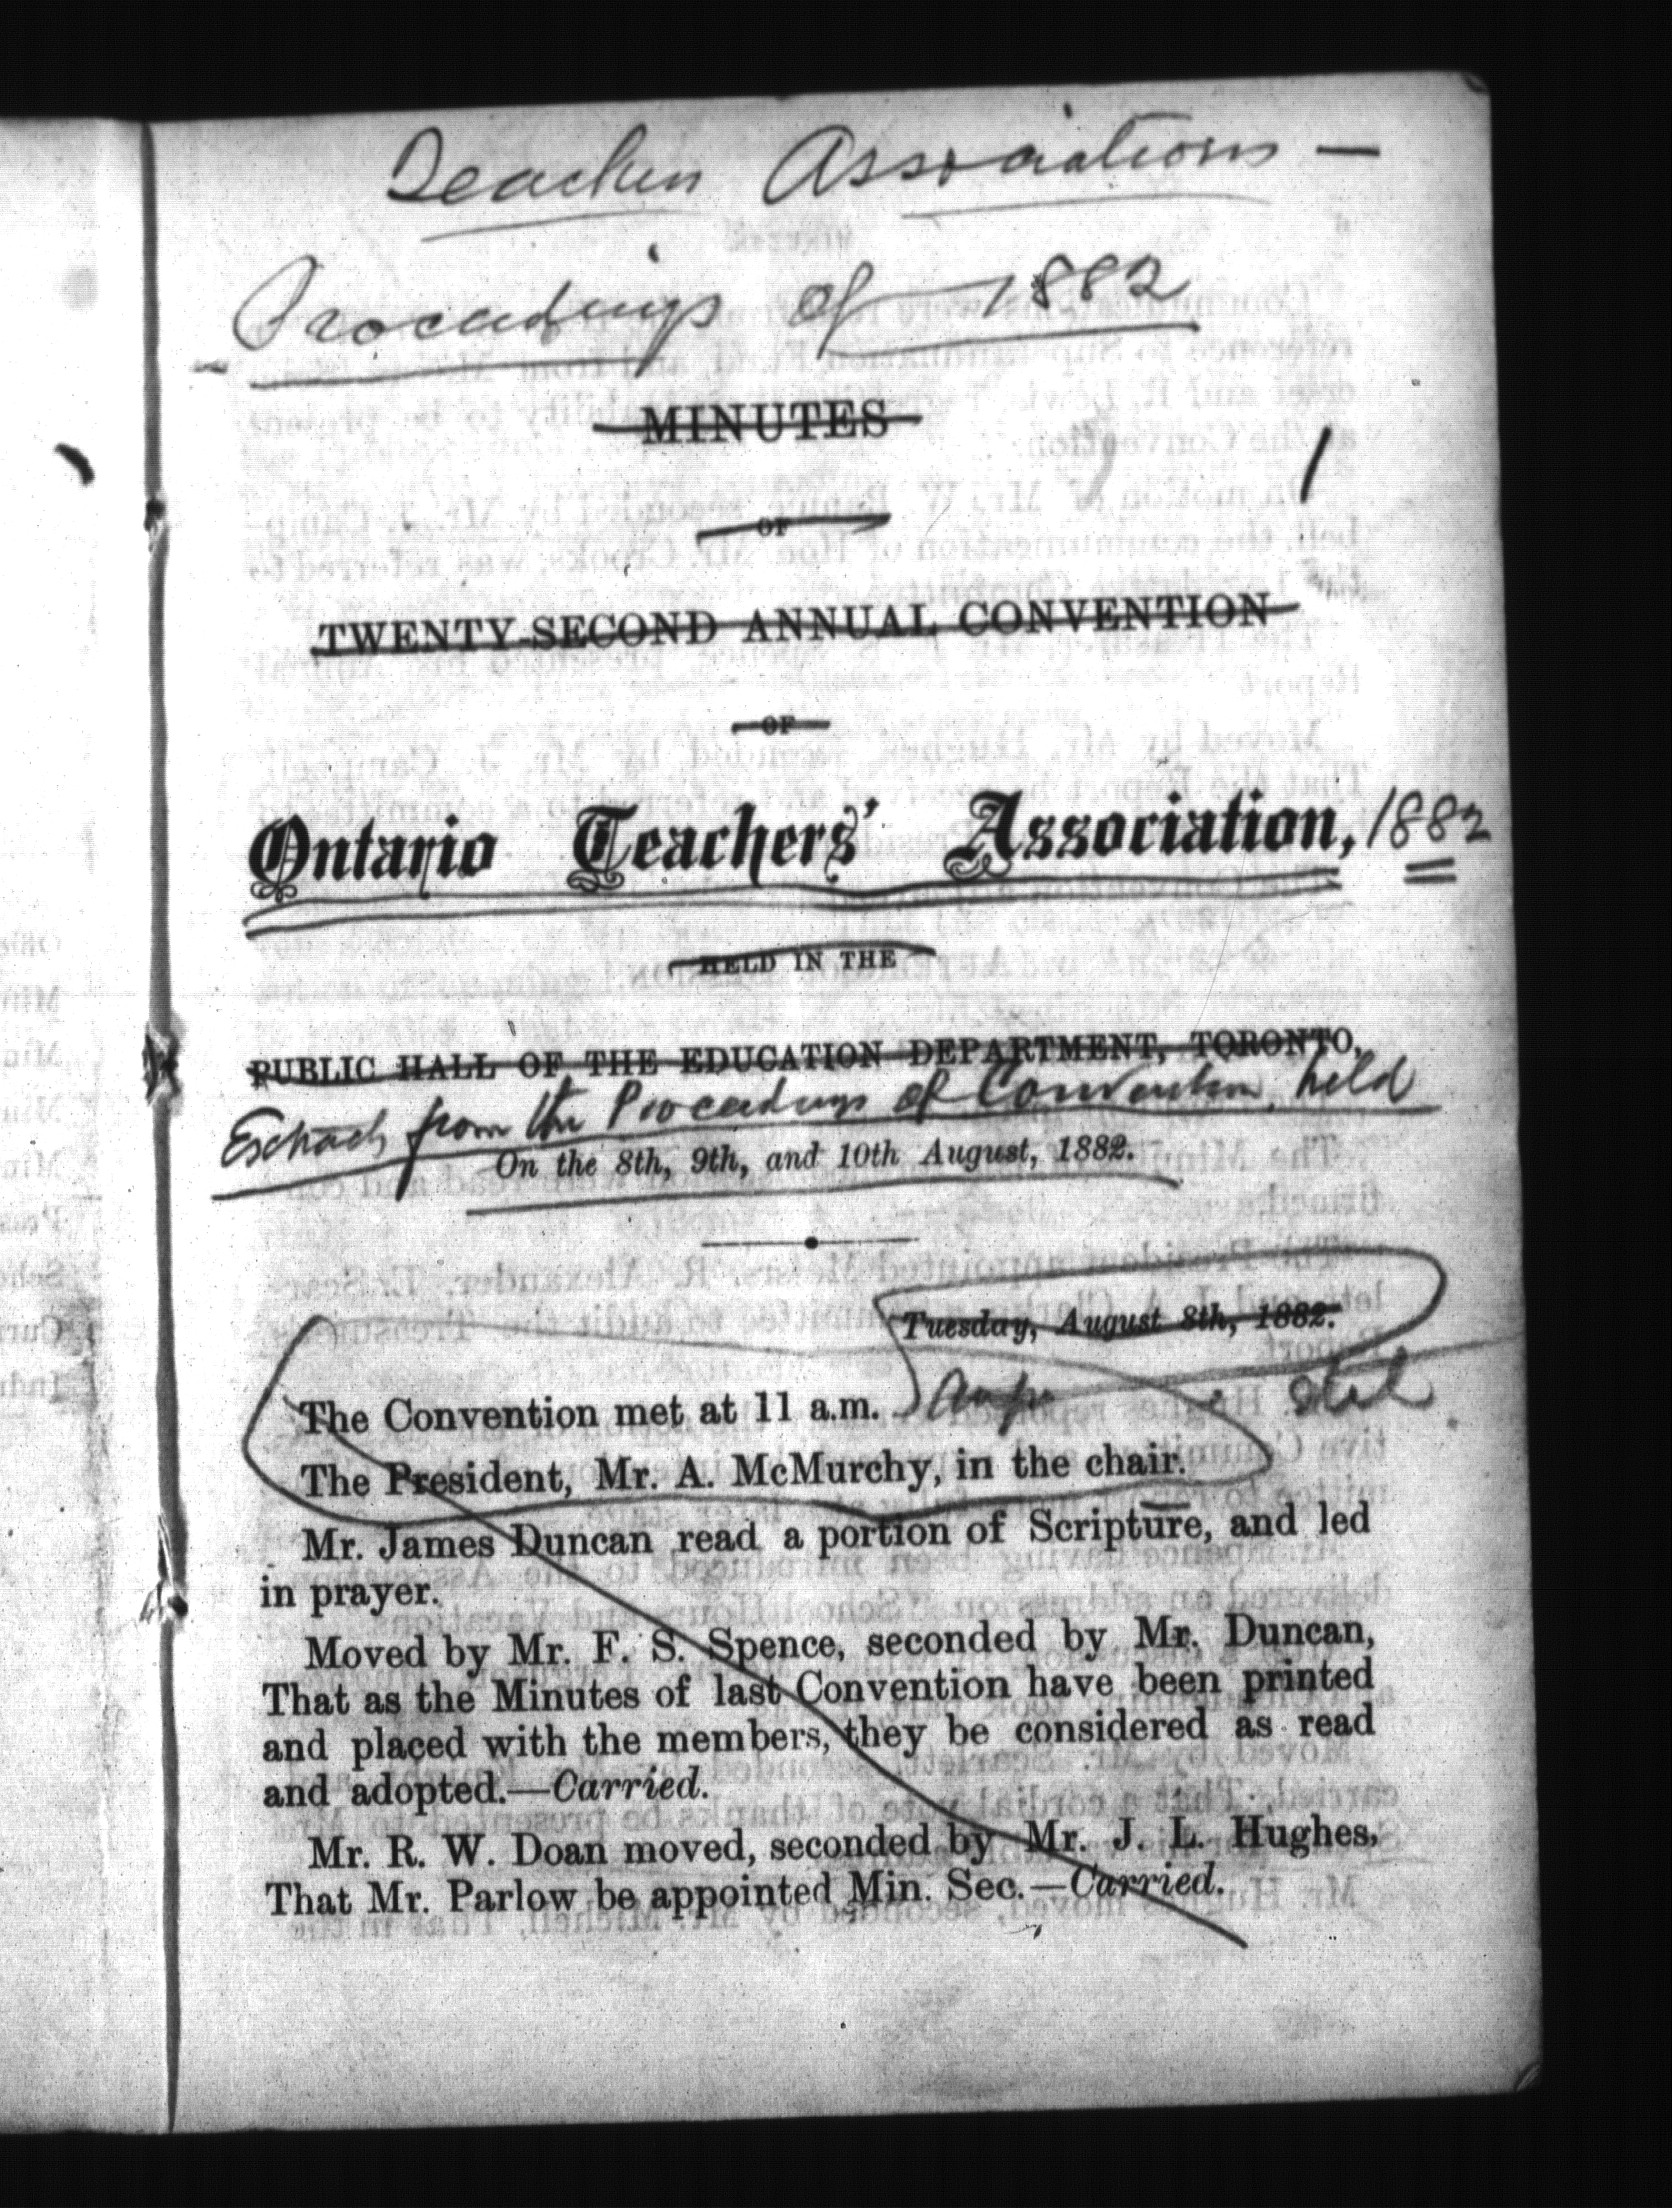 Teachers Associations —
Proceedings of 1882
MINUTES
OF
TWENTY-SECOND ANNUAL CONVENTION
OF
Ontario Teachers' Association, 1882
HELD IN THE
PUBLIC HALL OF THE EDUCATION DEPARTMENT, TORONTO,
Extracts from the Proceedings of Convention, held
On the 8th, 9th, and 10th August, 1882.
Tuesday, August 8th, 1882.
The Convention met at 11 a.m.
The President, Mr. A. McMurchy, in the chair.
Mr. James Duncan read a portion of Scripture, and led
in prayer.
Moved by Mr. F. S. Spence, seconded by Mr. Duncan,
That as the Minutes of last Convention have been printed
and placed with the members, they be considered as read
and adopted.—Carried.
Mr. R. W. Doan moved, seconded by Mr. J. L. Hughes,
That Mr. Parlow be appointed Min. Sec.—Carried.